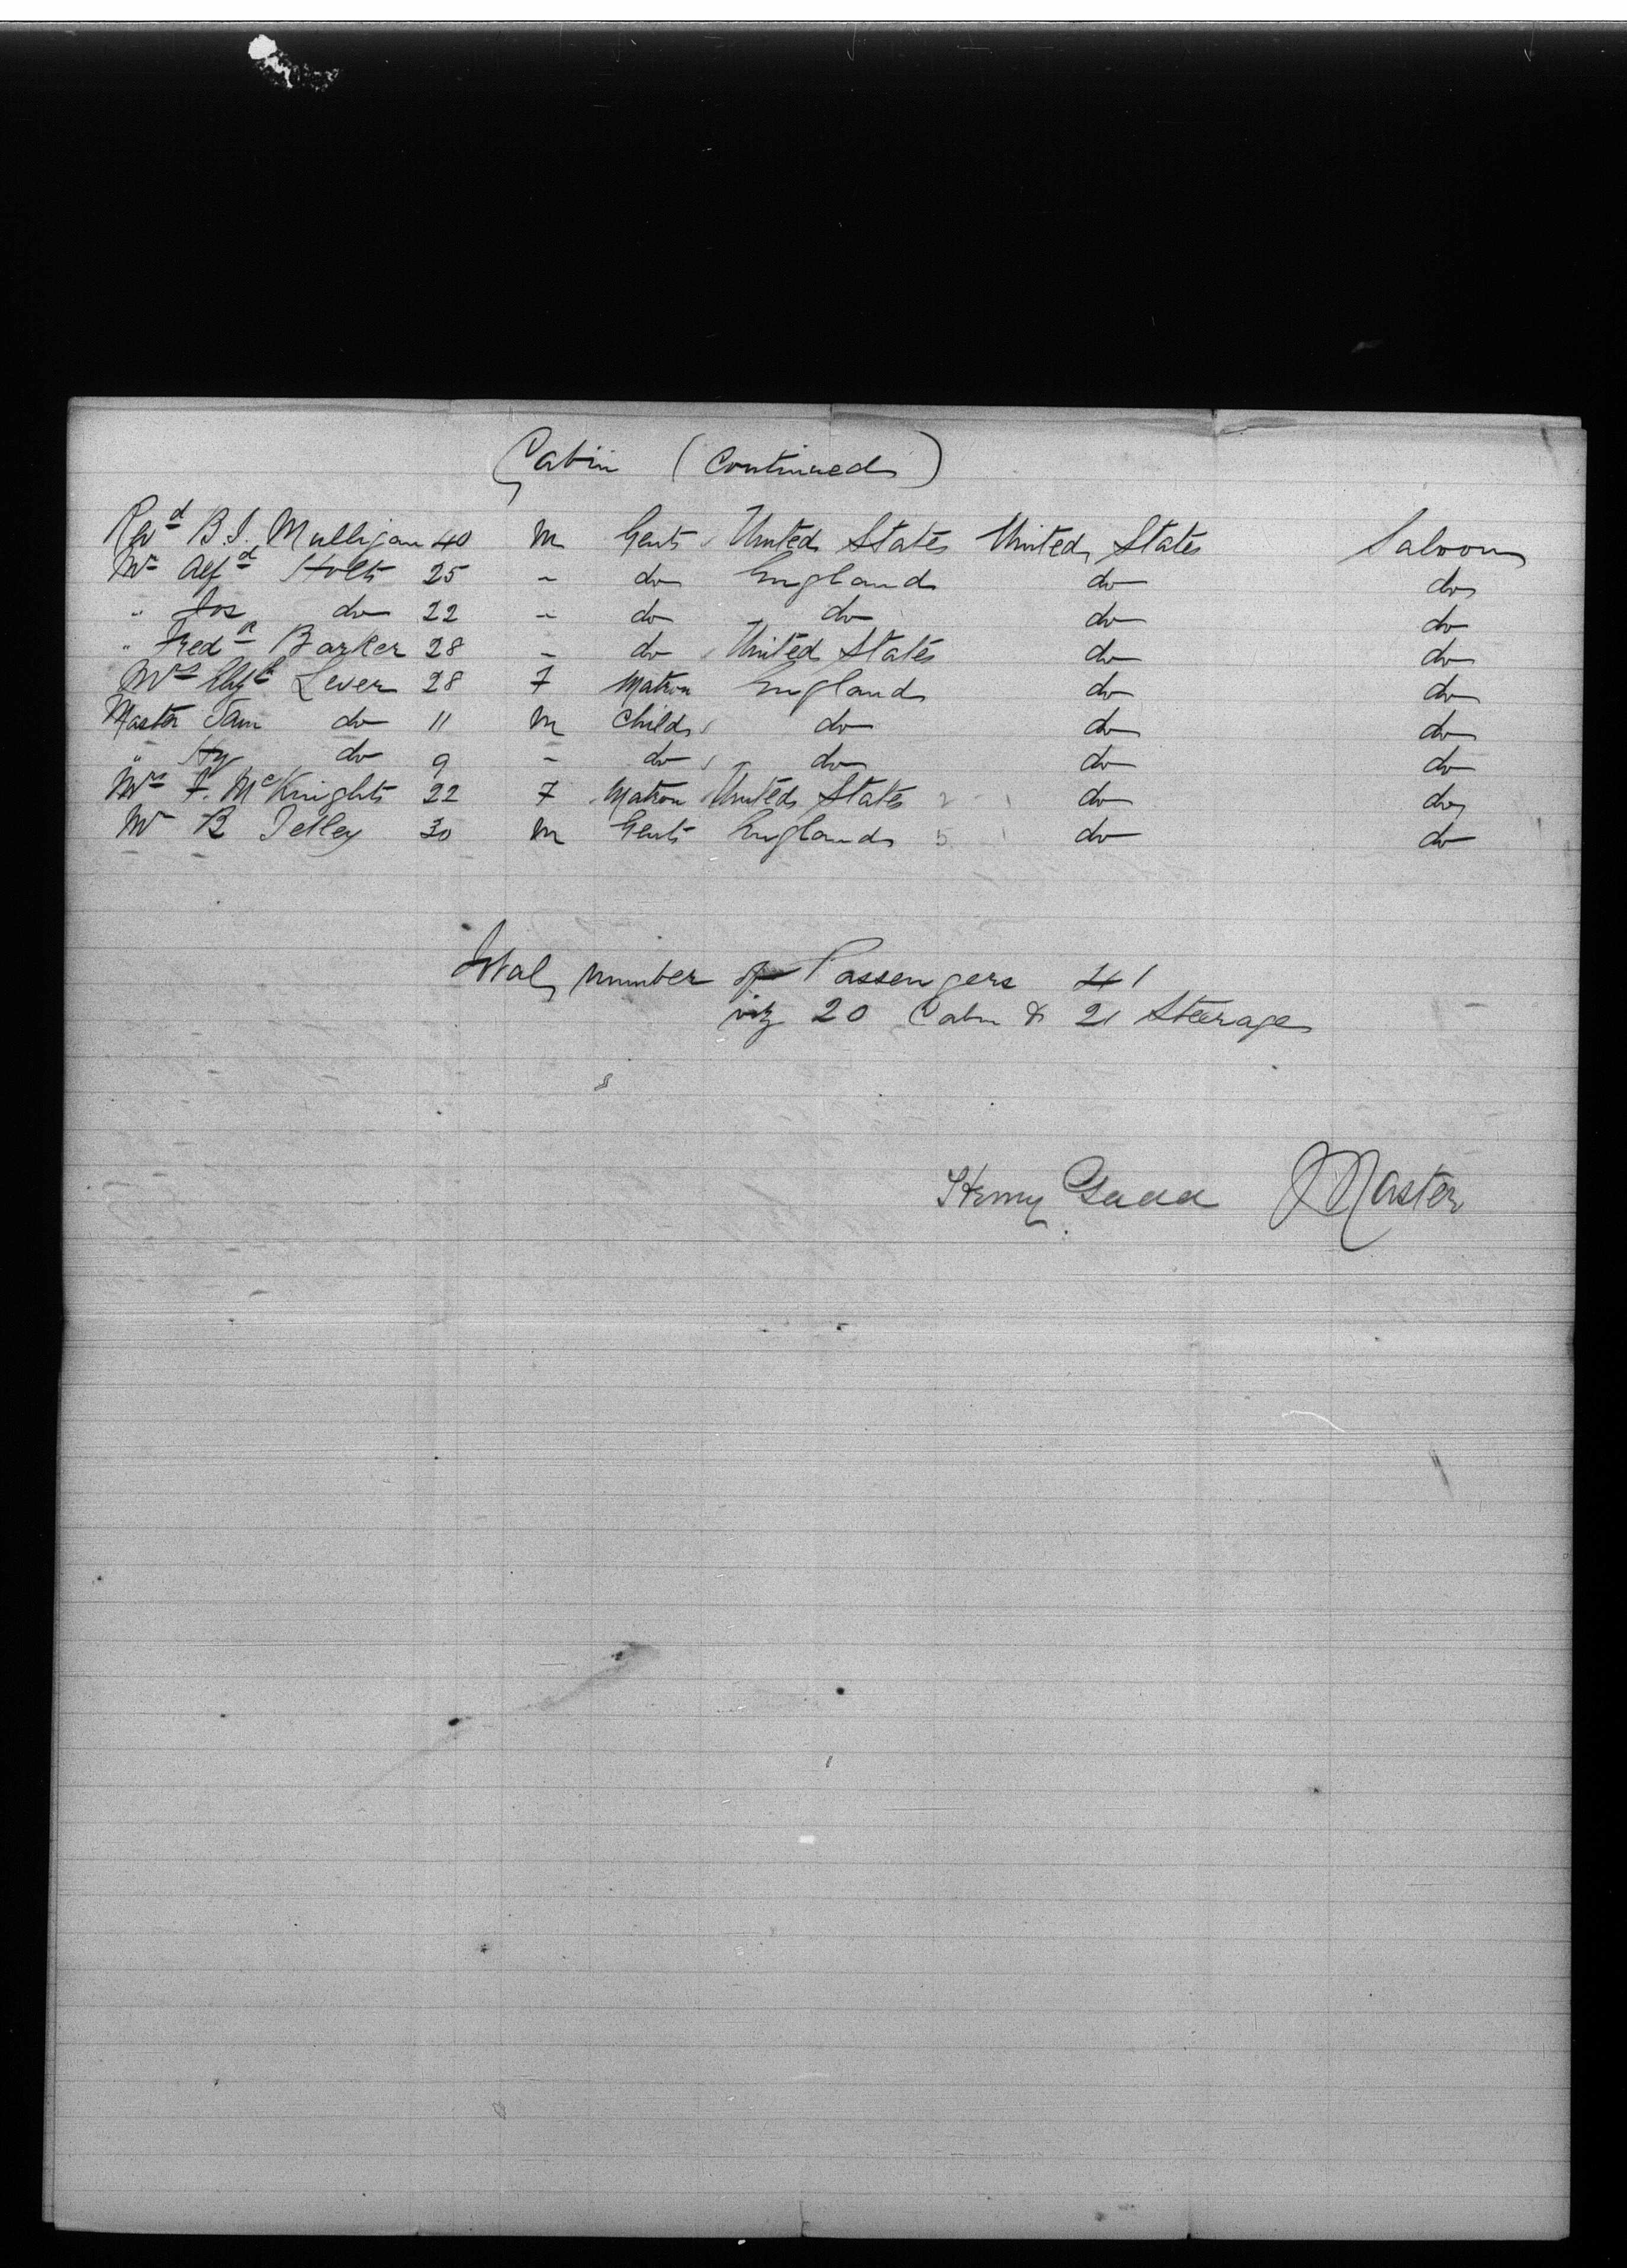 Cabin (Continued)
Revd B.J. Mulligan 40 m Gent United States United States Saloon
Mr Alfd Holt 25 " do England do do
" Jos do 22 " do do do do
" Fredk Barker 28 " do United States do do
Mrs Elizth Lever 28 F Matron England do do
Master Sam do 11 m Child do do do
" Hy do 9 " do do do do
Mrs F. McKnight 22 F Matron United States 2 1 do do
Mr R Jelley 30 m Gent England 5 1 do do
Total number of Passengers 41
viz 20 Cabin & 21 Steerage
Henry Gadd Master